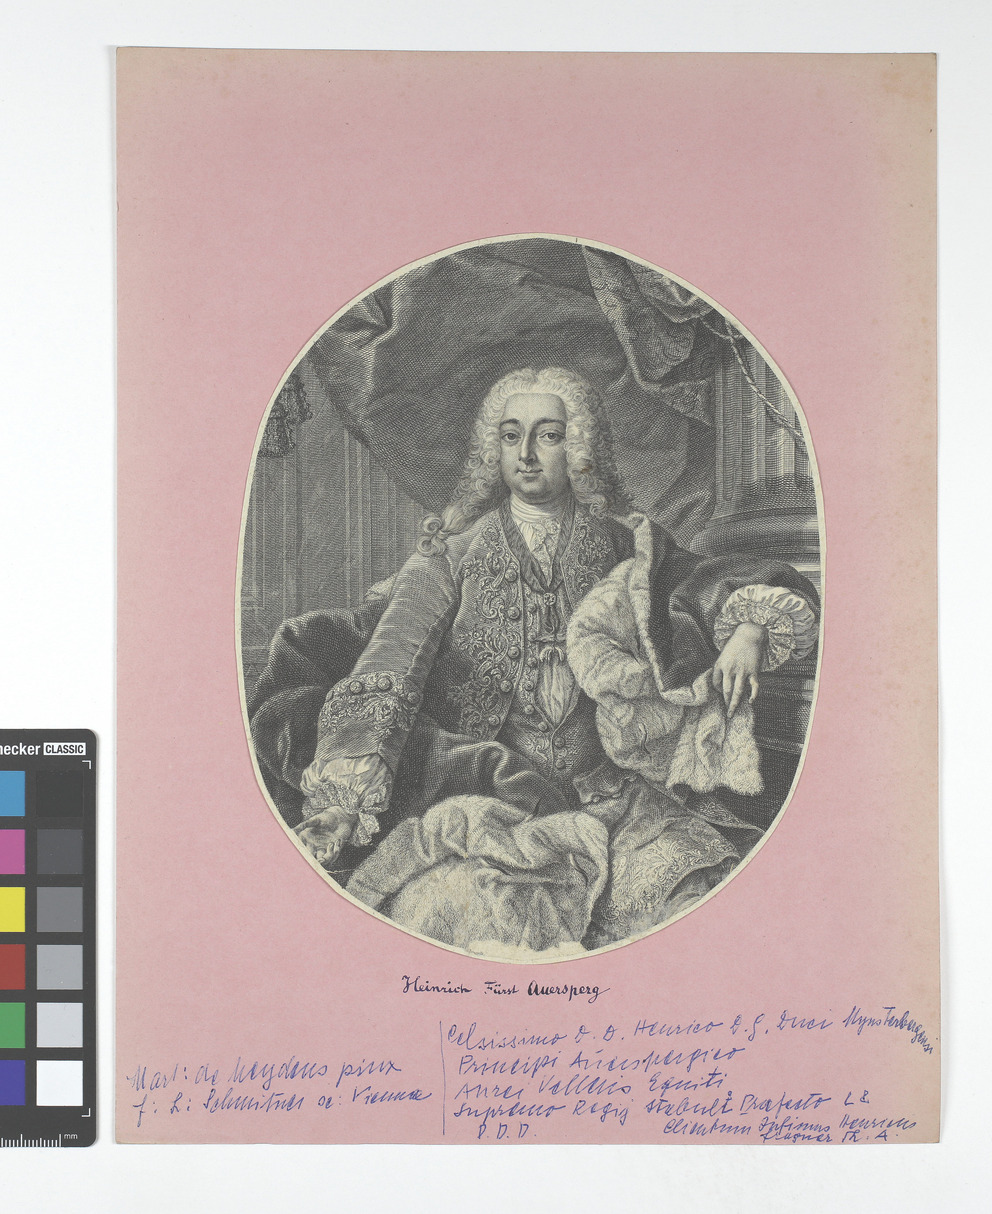 necker CLASSIC
Heinrich Fürst Auersperg
Mart: de Meydens pinx
f: L: Schmitner sc: Viennae
Celsissimo D. D. Henrico D. G. Duci Mynsterbergensi
Principi Auerspergico
Aurei Velleris Equiti
Supremo Regij Stabuli Praefecto
P. D. D.
Clientum Infimus Henricus
Th. A.
mm